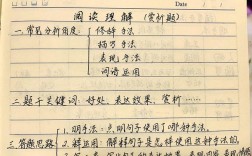 阅读理解（赏析题）
一.常见分析角度：修辞手法
描写手法
表现手法
词语运用
二.题干关键词：好处、表达效果、赏析……
三.答题思路
1.明手法：点明句子使用了哪种手法。
2.解运用：解释句子是怎样使用这种手法的